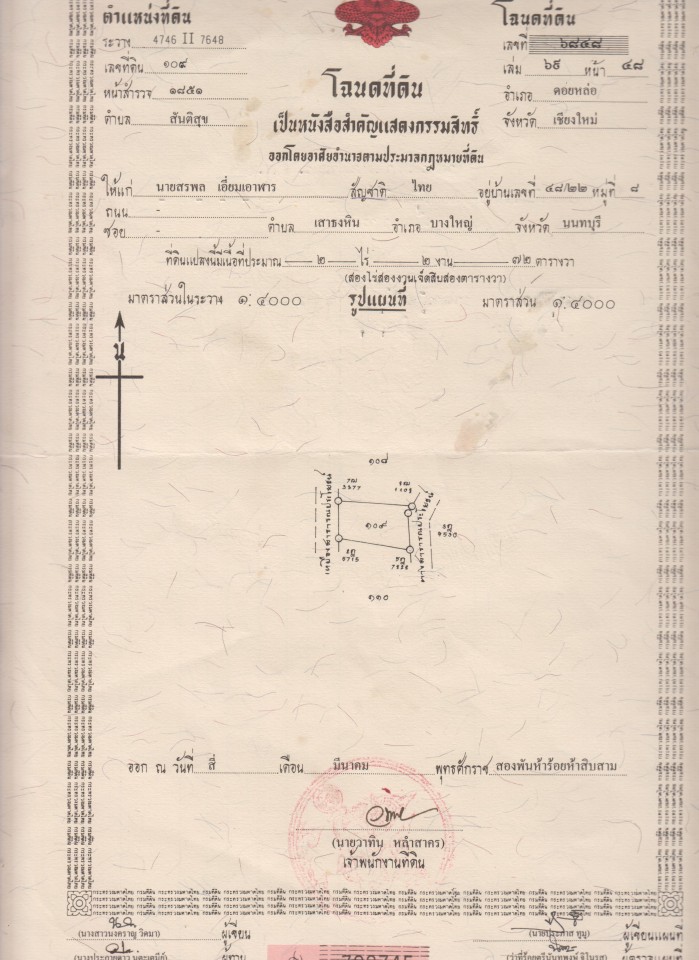 ตำแหน่งที่ดิน
ระวาง 4746 II 7648
เลขที่ดิน ๑๐๙
หน้าสำรวจ ๑๘๕๑
ตำบล สันติสุข
โฉนดที่ดิน
เลขที่ ๖๘๔๘
เล่ม ๖๙ หน้า ๔๘
อำเภอ ดอยหล่อ
จังหวัด เชียงใหม่
โฉนดที่ดิน
เป็นหนังสือสำคัญแสดงกรรมสิทธิ์
ออกโดยอาศัยอำนาจตามประมวลกฎหมายที่ดิน
ให้แก่ นายสรพล เอี่ยมเอาฬาร สัญชาติ ไทย อยู่บ้านเลขที่ ๔๘/๒๒ หมู่ที่ ๘
ถนน -
ซอย - ตำบล เสาธงหิน อำเภอ บางใหญ่ จังหวัด นนทบุรี
ที่ดินแปลงนี้มีเนื้อที่ประมาณ ๒ ไร่ ๒ งาน ๗๒ ตารางวา
(สองไร่สองงานเจ็ดสิบสองตารางวา)
มาตราส่วนในระวาง ๑:๔๐๐๐ รูปแผนที่ มาตราส่วน ๑:๔๐๐๐
น
๑๐๘
๑๐๙
๑๑๐
ออก ณ วันที่ สี่ เดือน มีนาคม พุทธศักราช สองพันห้าร้อยห้าสิบสาม
(นายวาทิน หล้าสาคร)
เจ้าพนักงานที่ดิน
ผู้เขียน
ผู้เขียนแผนที่
ผู้ทาน